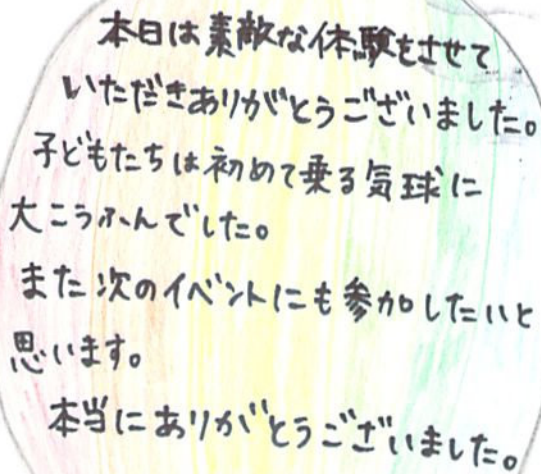 本日は素敵な体験をさせて
いただきありがとうございました。
子どもたちは初めて乗る気球に
大こうふんでした。
また次のイベントにも参加したいと
思います。
本当にありがとうございました。